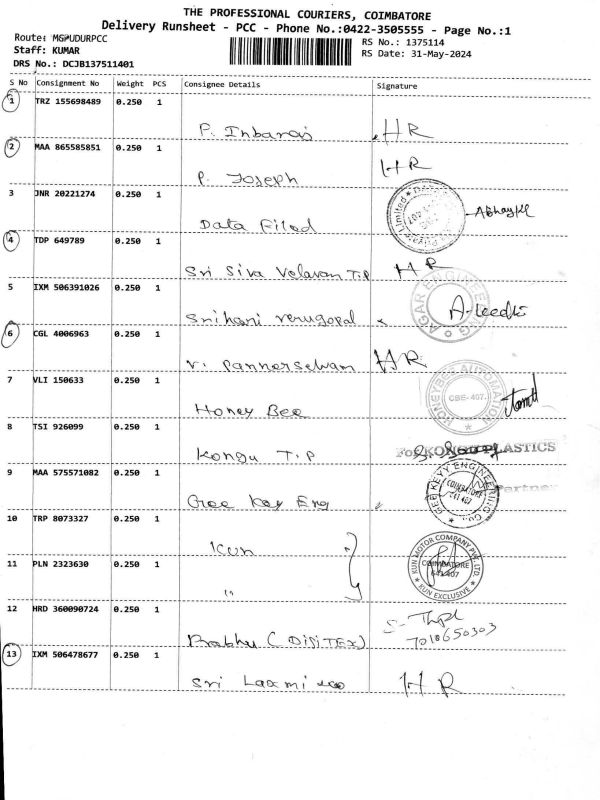 THE PROFESSIONAL COURIERS, COIMBATORE
Delivery Runsheet - PCC - Phone No.:0422-3505555 - Page No.:1
Route: MGPUDURPCC
RS No.: 1375114
Staff: KUMAR
RS Date: 31-May-2024
DRS No.: DCJB137511401
S No Consignment No Weight PCS Consignee Details Signature
1 TRZ 155698489 0.250 1
P. Inbaraj HR
2 MAA 865585851 0.250 1
P. Joseph HR
3 JNR 20221274 0.250 1
Data Filed
4 TDP 649789 0.250 1
Sri Siva Velavan T.P HR
5 IXM 506391026 0.250 1
AGAR ENGINEERING
Srihari venugopal
6 CGL 4006963 0.250 1
V. Pannerselvam HR
7 VLI 150633 0.250 1
HONEYBEE AUTOMATION
CBE- 407.
Honey Bee
8 TSI 926099 0.250 1
For KONGU PLASTICS
Kongu T.P
9 MAA 575571082 0.250 1
GEE KEYY ENGINEERING Co.,
COIMBATORE
641 407
Partner
Gee Kay Eng
10 TRP 8073327 0.250 1
Kun
KUN MOTOR COMPANY PVT. LTD
COIMBATORE
641 407
KUN EXCLUSIVE
11 PLN 2323630 0.250 1
"
12 HRD 360090724 0.250 1
7010650303
Prabhu ( DigiTEX)
13 IXM 506478677 0.250 1
Sri Laxmi HR